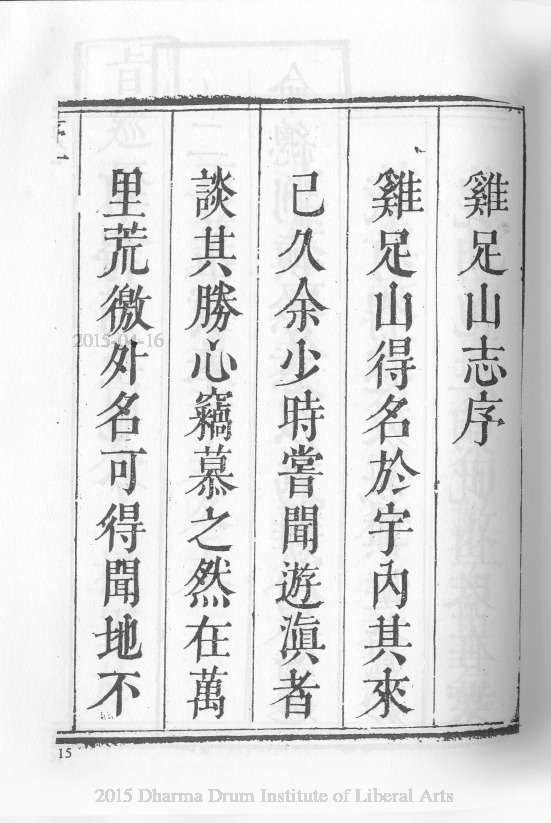 雞足山志序
雞足山得名於宇內其來
已久余少時嘗聞遊滇者
談其勝心竊慕之然在萬
里荒徼外名可得聞地不
序一
15
2015-04-16
2015 Dharma Drum Institute of Liberal Arts